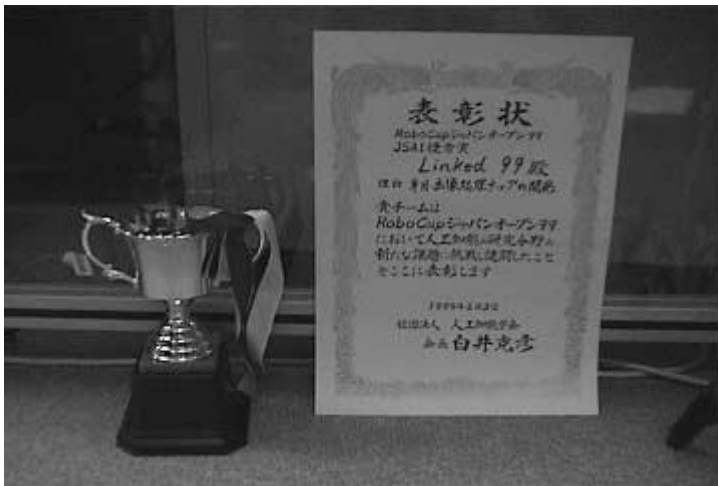 表彰状
RoboCupジャパンオープン99
JSAI優秀賞
Linked 99 殿
理由 専用画像処理チップの開発
貴チームは
RoboCupジャパンオープン99
において人工知能の研究分野の
新たな課題に挑戦し健闘したこと
をここに表彰します
社団法人 人工知能学会
会長 白井克彦